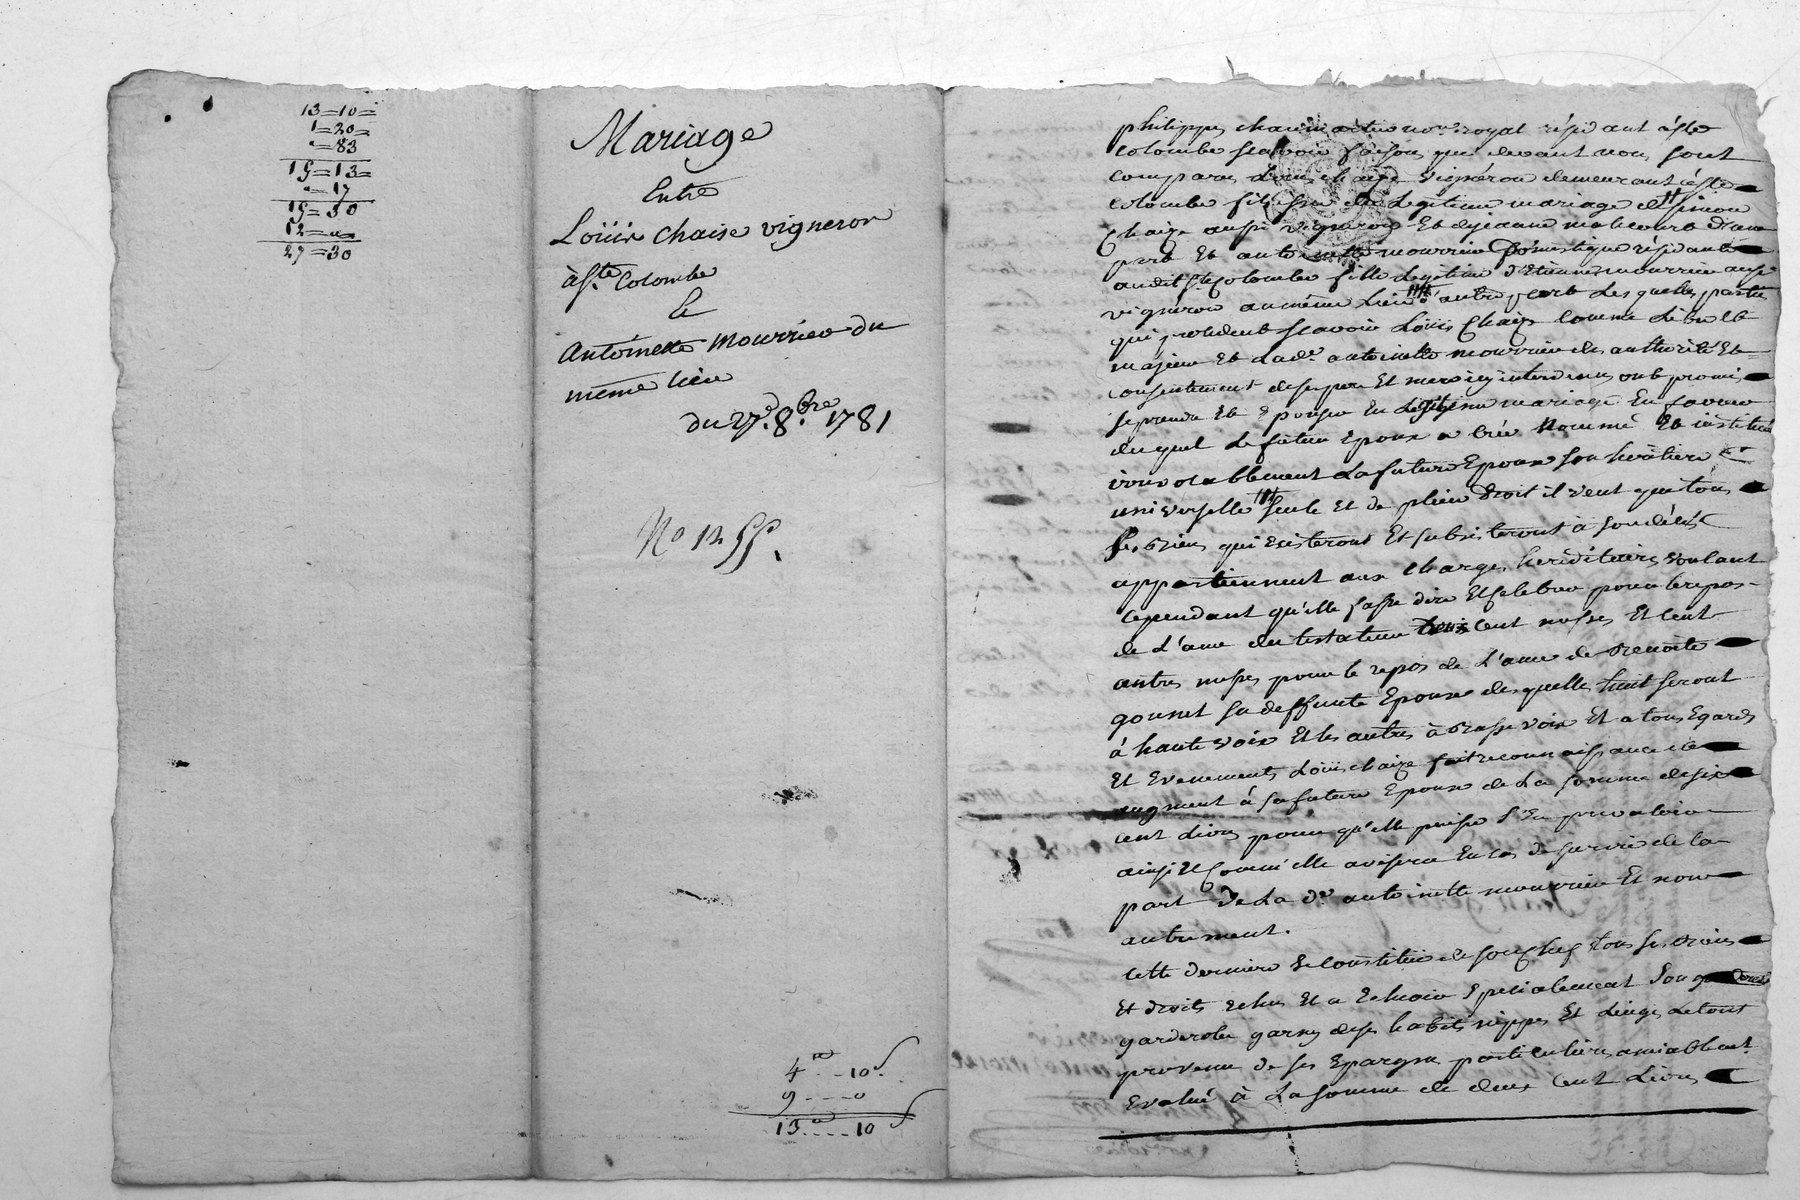 13=10=
1=20=
"=83
15=13=
"=17
15=30
12="
27=30
Mariage
Entre
Loüis chaise vigneron
à Ste. Colombe
Et
Antoinette mourrier du
même lieu
du 27e. 8bre. 1781
No 12
4 .. 10 s
9 ... 0
13 .... 10 s
philippe notre royal résidant à ste
colombe scavoir faisons que devant nous sont
comparus Louis chaize vigneron demeurant à ste
colombe fils légitime mariage de simon
Chaize aussi vigneron Et de jeanne d'une
part Et antoinette mourrier Domestique résidante
audit Ste Colombe fille légitime d'Etienne mourrier aussi
vigneron au même Lieu d'autre part Lesquelles parties
qui procedent scavoir Loüis Chaize comme Libre et
majeur Et Lade. antoinette mourrier de authorité Et
consentement de ses pere Et mere icy intervenus ont promis
se prendre Et Epouser En Légitime mariage En faveur
duquel Le futur Epoux a créé Nommé Et institué
irrevocablement La future Epouse son héritiere
universelle seule Et de plein Droit il veut que tous
ses Biens qui Existeront Et subsisteront à son décès
appartiennent aux charges héréditaires voulant
cependant qu'elle fasse dire Et celebrer pour le repos
de L'ame du testateur cent messes Et cent
autres messes pour le repos de L'ame de Benoite
gonnet sa deffunte Epouse desquelles huit seront
à haute voix Et les autres à Basse voix Et a tous Egards
Et Evenements Loüis chaize fait reconnaissance
augment à sa future Epouse de La somme de six
cent Livres pour qu'elle puisse s'En prevaloir
ainsi Et Comm'elle avisera En cas de survie de la
part de La de. antoinette mourrier Et non
autrement.
cette derniere se constitüe de son chef tous ses Biens
Et droits Echus Et a Echoir specialement son
garderobe garny de ses habits nippes Et Linges Le tout
provenu de ses Epargnes particulieres amiablemt.
Evalué à La somme de deux cent Livres